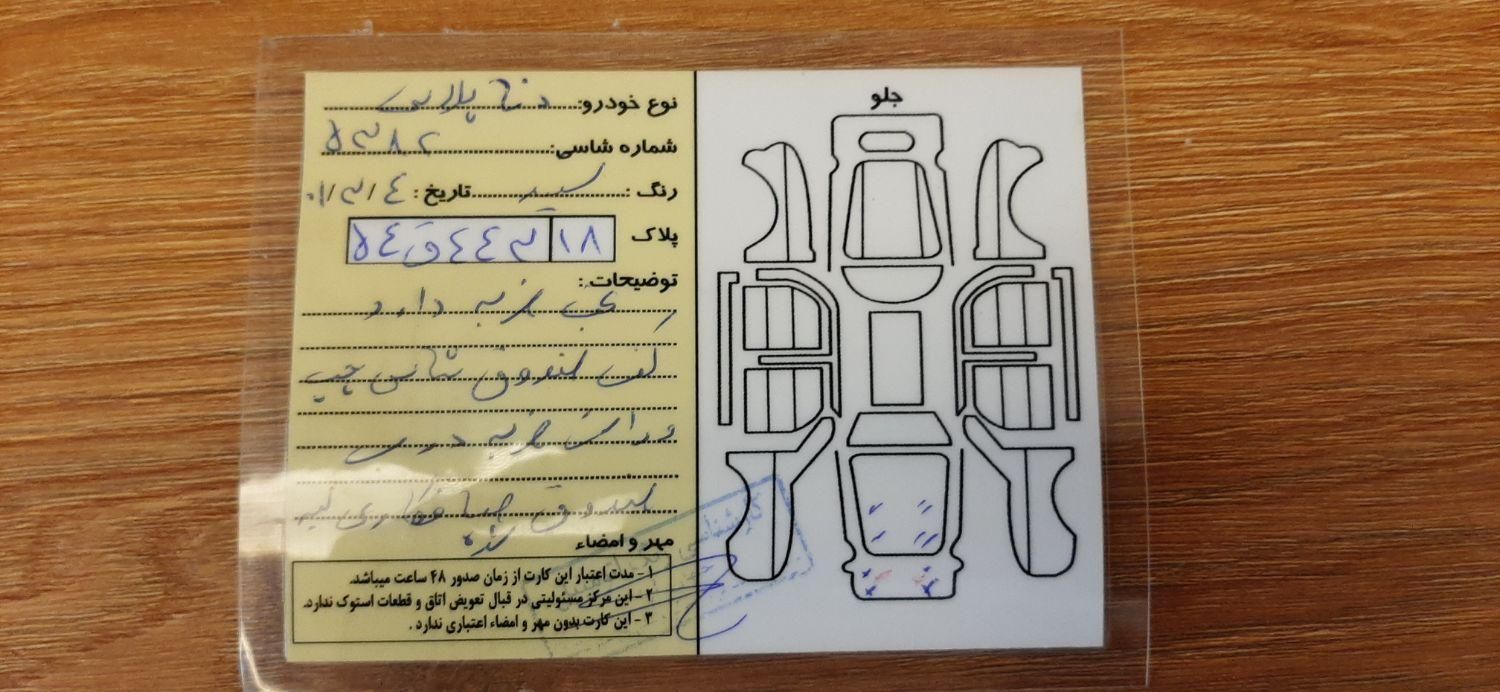 جلو
نوع خودرو: دنا پلاس
شماره شاسی: ۵۳۸۲
رنگ: سفید تاریخ: ۰۱/۳/۴
پلاک ۵۴ق۴۴۳ ۱۸
توضیحات:
عقب ضربه دارد
کف صندوق شاسی چپ
و راست ضربه درب
صندوق صافکاری
مهر و امضاء
۱ - مدت اعتبار این کارت از زمان صدور ۴۸ ساعت میباشد.
۲ - این مرکز مسئولیتی در قبال تعویض اتاق و قطعات استوک ندارد.
۳ - این کارت بدون مهر و امضاء اعتباری ندارد.
کارشناسی